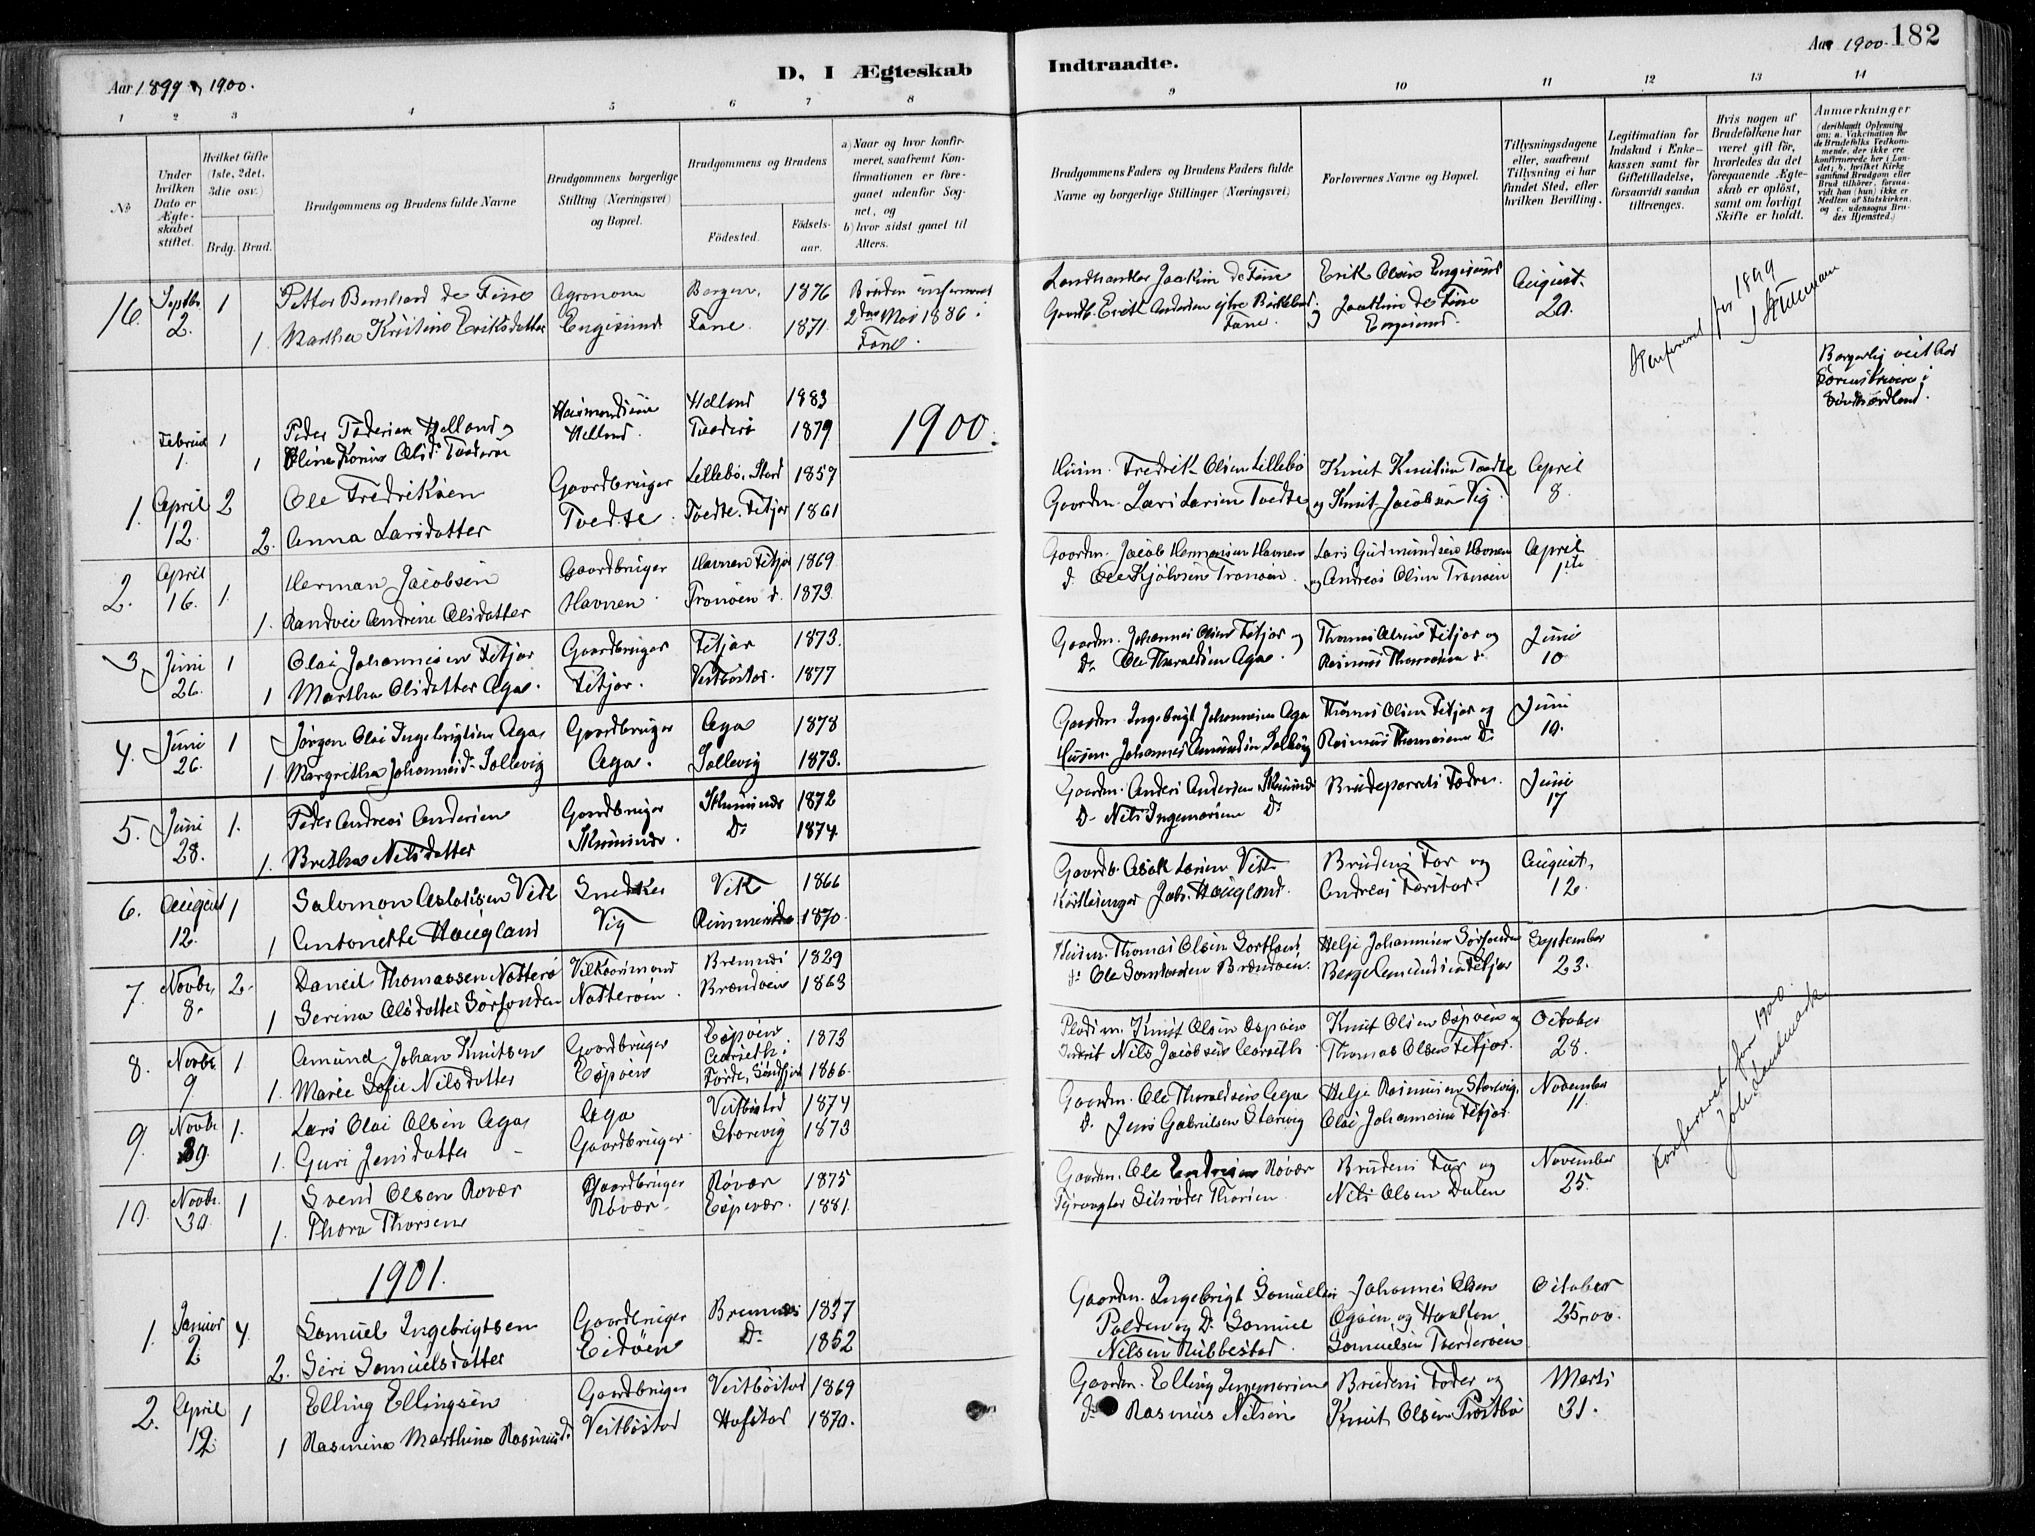 Aar 1899 og 1900.
D, I Ægteskab
Indtraadte.
Aar 1900.
182
1 2 3 4 5 6 7 8 9 10 11 12 13 14
No
Under hvilken Dato er Ægte-skabet stiftet.
Hvilket Gifte (1ste, 2det, 3die osv.)
Brdg. Brud.
Brudgommens og Brudens fulde Navne
Brudgommens borgerlige Stilling (Næringsvei) og Bopæl.
Brudgommens og Brudens
Fødested.
Fødsels-aar.
a) Naar og hvor konfir-meret, saafremt Kon-firmationen er fore-gaaet udenfor Sog-net, og
b) hvor sidst gaaet til Alters.
Brudgommens Faders og Brudens Faders fulde Navne og borgerlige Stillinger (Næringsvei)
Forlovernes Navne og Bopæl.
Tillysningsdagene eller, saafremt Tillysning ei har fundet Sted, efter hvilken Bevilling.
Legitimation for Indskud i Enke-kassen samt for Giftetilladelse, forsaavidt saadan tiltrænges.
Hvis nogen af Brudefolkene har været gift før, hvorledes da det foregaaende Ægte-skab er opløst, samt om lovligt Skifte er holdt.
Anmærkninger
(deriblandt Oplysning om: a. Vakcination for de Brudefolks Vedkom-mende, der ikke ere konfirmerede her i Lan-det; b. hvilket Kirke-samfund Brudgom eller Brud tilhører, forsaa-vidt han (hun) ikke er Medlem af Statskirken, og c. udensogns Bru-des Hjemsted.)
16. Septbr 1 Petter Bernhard de Fine Agronom Bergen, 1876 Bruden konfirmeret Landhandler Joachim de Fine Erik Olsen Engesund August
2. 1. Martha Kristine Eriksdatter Engesund Fane. 1871. 2den Mai 1886 i Gaardb. Erik Andersen Fane. og Joachim de Fine Engesund. 20.
Fane.
Konfereret for 1899
Borgerlig viet hos Sorenskriveren i Søndhordland.
Februar 1 Peder Pedersen Helland og Helland 1883
1. 1 Oline Karine Olsd. Helland. 1879
1900.
1. April 2 Ole Fredriksen Gaardbruger Lillebø, Stord 1857 Husm. Fredrik Olsen Lillebø Knut Knutsen Tvedte April
12. 2. Anna Larsdatter Tvedte. Tvedte. Fitjar 1861 Gaardm. Lars Larsen Tvedte og Knut Jacobsen Vig. 8.
2. April 1. Herman Jacobsen Gaardbruger Havnen Fitjar 1869 Gaardm. Jacob Hermansen Havnen Lars Gudmundsen Havnen April
16. 1. Randvei Andrine Olsdatter Havnen. Tranøen d. 1873. d. Ole Kjølvsen Tranøen. og Andreas Olsen Tranøen 1ste
3. Juni 1 Olai Johannesen Fitjar Gaardbruger Fitjar 1873. Gaardm. Johannes Olsen Fitjar og Thomas Olsen Fitjar og Juni
26. 1 Martha Olsdatter Aga. Fitjar. Vestbøstad. 1877 Do Ole Tharaldsen Aga. Rasmus Thomasen d. 10
4. Juni 1 Jørgen Olai Ingebrigtsen Aga Gaardbruger Aga 1878 Gaardm. Ingebrigt Johannesen Aga Thomas Olsen Fitjar og Juni
26. 1. Margretha Johannesd. Sollevig Aga. Sollevig 1873. Husm. Johannes Amundsen Rasmus Thomasen Do 10.
5. Juni 1. Peder Andreas Andersen Gaardbruger 1872 Gaardm. Anders Andersen Brudeparrets Fædre. Juni
28. 1. Bretha Nilsdatter Do 1874. Do Nils Ingemarsen Do 17
6. August 1 Salomon Aslaksen Vik Snedker Vik 1866 Gaardb. Aslak Larsen Vik Brudens Far og August,
12. 1 Antonette Haugland Vig 1870. Johs. Haugland. Andreas 12.
7. Novbr 2. Daneil Thomassen Natterø Bremnes 1829 Husm. Thomas Olsen Helje Johannesen Sørfonden September
8. 1 Serina Olsdatter Sørfonden Natterøen. Brandøen 1863 do Ole Brandøen. Berge Amundsen Fitjar 23.
8. Novbr. 1 Amund Johan Knutsen Gaardbruger Espøen. 1873 Pladsm. Knut Olsen Espøen Knut Olsen Espøen og October
9 1. Marie Sofie Nilsdatter Espøen Førde, Søndfjord 1866. Inderst Nils Jacobsen Thomas Olsen Fitjar. 28.
9. Novbr. 1. Lars Olai Olsen Aga Aga Vestbøstad 1874 Gaardm. Ole Tharaldsen Aga Helje Rasmusen Storevig. November
30. 1. Guri Jensdatter Gaardbruger Storevig 1873 D. Jens Gabrielsen Storevig Olai Johannesen Fitjar 11.
10. Novbr. 1 Svend Olsen Røvær Gaardbruger Røvær 1875 Gaardm. Ole Endresen Røvær Brudens Far og November
30. 1. Thora Thorsen Røvær. Espevær. 1881. Fyrvogter Thorsen. Nils Olsen Dalen 25.
Konfereret for 1900.
1901.
1. Januar 4. Samuel Ingebrigtsen Gaardbruger Bremnes 1837 Gaardm. Ingebrigt Samuelsen Johannes Olsen October
2 2. Siri Samuelsdatter Eidøen Do 1852 og D. Samuel og 25 nov.
Nilsen Rubbestad. Samuelsen
2. April 1 Elling Ellingsen Gaardbruger Vestbøstad 1869 Gaardm. Elling Ingemarsen Brudens Fader og Marts
12. 1 Rasmina Marthina Rasmusd. Vestbøstad Hafstad 1870. do Rasmus Nilsen Knut Olsen 31.